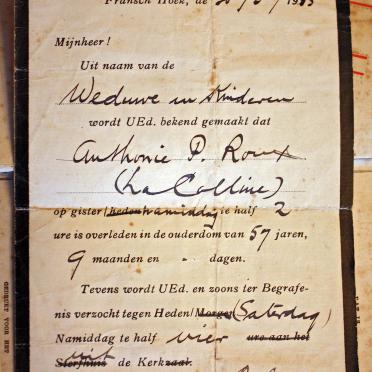 Fransch Hoek, de
Mijnheer!
Uit naam van de
Weduwe en Kinderen
wordt UEd. bekend gemaakt dat
Anthonie P. Roux
(La Colline)
op gister/heden namiddag te half 2
ure is overleden in de ouderdom van 57 jaren,
9 maanden en - dagen.
Tevens wordt UEd. en zoons ter Begrafe-
nis verzocht tegen Heden/Morgen (Saterdag)
Namiddag te half vier ure aan het
Sterfhuis uit de Kerkzaal.
GEDRUKT VOOR HET